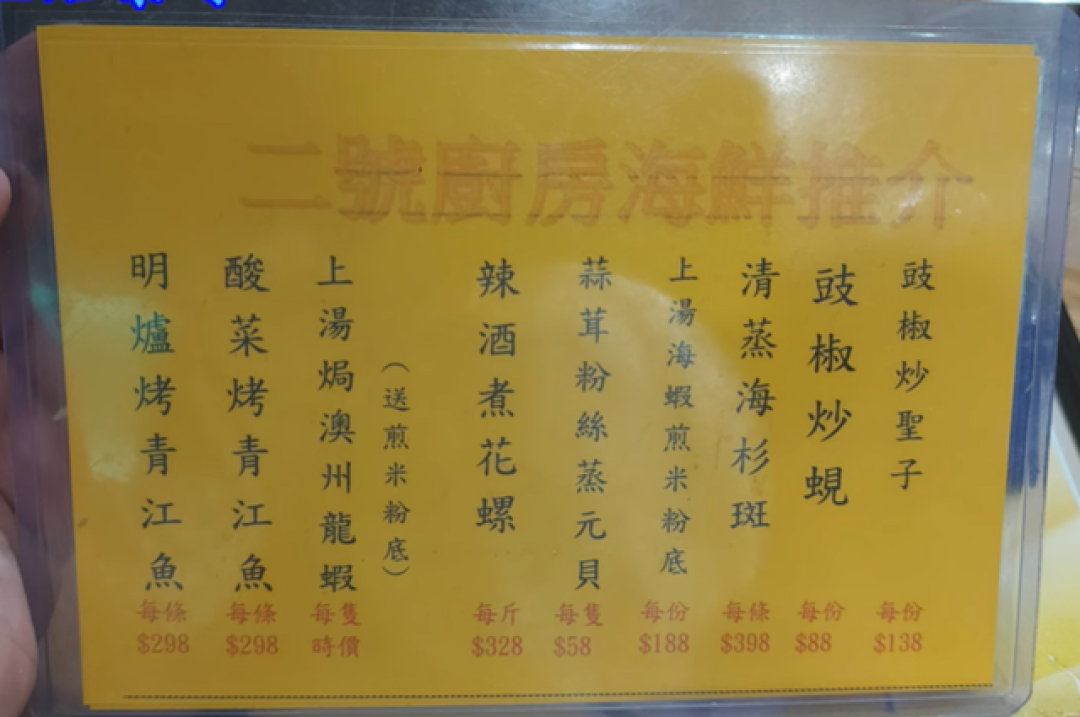 二號廚房海鮮推介
豉椒炒聖子
每份
$138
豉椒炒蜆
每份
$88
清蒸海杉斑
每條
$398
上湯海蝦煎米粉底
每份
$188
蒜茸粉絲蒸元貝
每隻
$58
辣酒煮花螺
每斤
$328
上湯焗澳州龍蝦
（送煎米粉底）
每隻
時價
酸菜烤青江魚
每條
$298
明爐烤青江魚
每條
$298